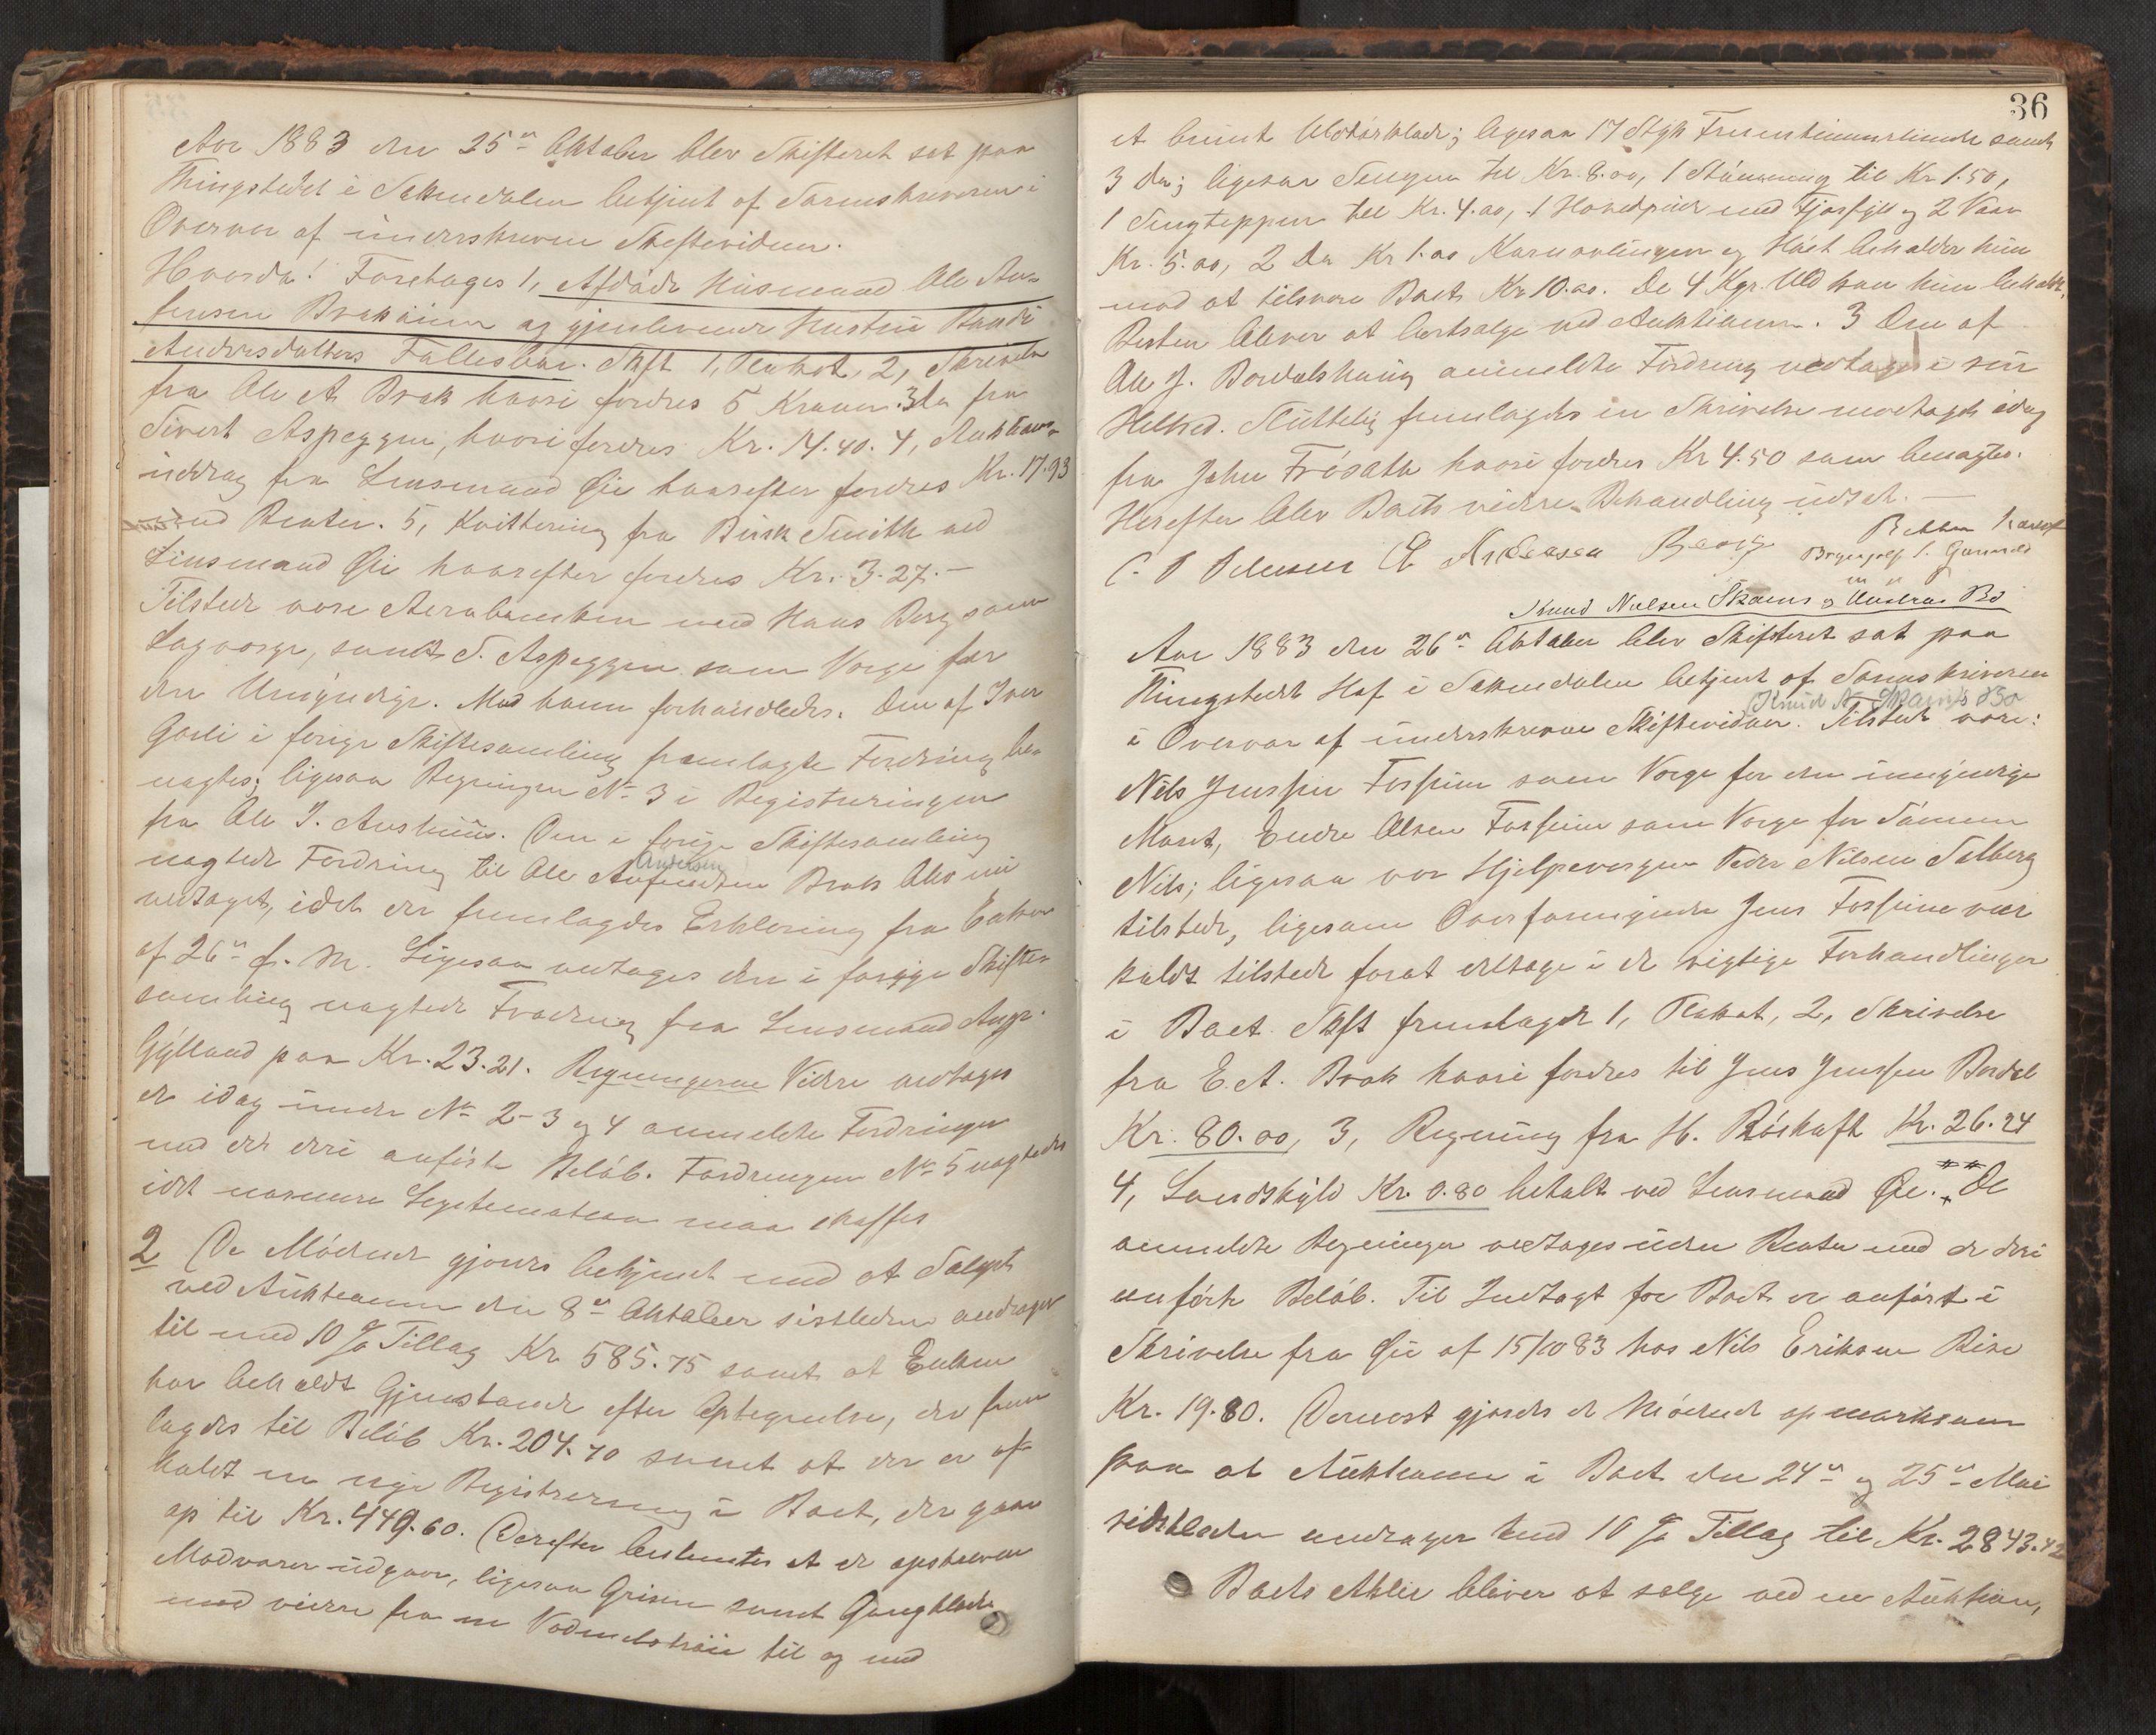 Aar 1883 den 25de Oktober blev Skifteret sat paa
Thingstedet i Sakendalen betjent af Sorenskriveren i
Overvær af underskrevne Skiftevidner.
Hvorda! Foretages 1, Afdøde Husmand Ole An-
fensen Brakäunn og gjenlevende Hustru Randi
Andersdatters Fællesbo. Skft 1, Plakat, 2, Skrivelse
fra Ole A. Brak hvori fordres 5 Kroner. 3 Do fra
Sivert Aspeggen, hvori fordres Kr. 14.40. 4, Auktions-
uddrag fra Lensmand Øie hvorefter fordres Kr. 17.93
med Renter. 5, Kvittering fra Birk Smith ved
Lensmand Øie hvorefter fordres Kr. 3.27. —
Tilstede vare Arvebunken med Hans Berg som
Lagværge, samt S. Aspeggen som Værge for
den Umyndige. Med ham forhandledes. Den af Iver
Gaeli i forige Skiftesamling fremlagte Fordring be-
nægtes; ligesaa Regningen No 3 i Registreringen
fra Ole J. Aushuus. Den i forige Skiftesamling
Andersen
nægtede Fordring til Ole Anfindsen Brak blev nu
vedtaget, idet der fremlagdes Erklæring fra Enken
af 26de f. M. Ligesaa vedtages den i forrige Skifte-
samling nægtede Fordring fra Lensmand Aug.
Gylland paa Kr. 23.21. Regningerne Videre vedtages
de idag under No 2-3 og 4 anmeldte Fordringer
med det deri anførte Beløb. Fordringen No 5 nægtedes
idet nærmere Legitimation maa skaffes
2 De Mødende gjordes bekjendt med at Salget
ved Auktionen den 8de Oktober sistleden andrager
til med 10 % Tillæg Kr. 585.75 samt at Enken
har beholdt Gjenstande efter Optegnelse, der frem-
lagdes til Beløb Kr. 204.70 samt at der er af-
holdt en nye Registrering i Boet, der gaar
op til Kr. 449.60. Derefter besluttes at de opskrevne
Madvarer udgaar, ligesaa Grisen samt Gangklæder
med videre fra en Vadmelstrøie til og med
36
et brunt Uldtørklæde; ligesaa 17 Styk Fruentimmerlinde samt
3 Do; ligesaa Sengen til Kr. 8.00, 1 Størvæng til Kr 1.50,
1 Sengteppen til Kr. 4.00, 1 Hovedpude med Fjærfyld og 2 Vaar
Kr. 5.00, 2 Do Kr 1.00 Kornavlingen og Høet beholder hun
mod at tilsvare Boet Kr 10.00. De 4 Kgr. Uld kan hun beholde.
Resten bliver at bortsælge ved Auktionen. 3 Den af
Ole J. Bordalshaug anmeldte Fordring vedtages i sin
Helhed. Sluttelig fremlagdes en Skrivelse modtaget idag
fra John Frösath hvori fordres Kr 4.50 som benægtes.
Herefter blev Boets videre Behandling udsat. —
C. P Petersen E. Andersen Berg
Knud Nielsen Skams Bo
Aar 1883 den 26de Oktober blev Skifteret sat paa
Thingstedet Hof i Sakendalen betjent af Sorenskriveren
Knud N. Skams Bo
i Overvær af underskrevne Skiftevidner. Tilstede vare:
Nils Jenssen Forseun som Værge for den umyndige
Marit, Endre Olsen Forseun som Værge for Sønnen
Nils; ligesaa var Hjelpeværgen Peder Nilsen Solberg
tilstede, ligesom Overformynder Jens Forseun var
kaldt tilstede forat deltage i de vigtige Forhandlinger
i Boet. Skft fremlagdes 1, Plakat, 2, Skrivelse
fra E. A. Brak hvori fordres til Jens Jenssen Bordal
Kr. 80.00, 3, Regning fra H. Röskaft Kr. 26.24
4, Landskyld Kr. 0.80 betalt ved Lensmand Øie. De
anmeldte Regninger vedtages uden Renter med de deri
anførte Beløb. Til Indtægt for Boet er anført i
Skrivelse fra Øie af 15/10 83 hos Nils Eriksen Rise
Kr. 19.80. Dernæst gjordes de Mødende opmærksom
paa at Auktionen i Boet den 24de og 25de Mai
sidstleden andrager med 10 % Tillæg til Kr. 2843.42
Boets Aktier bliver at sælge ved en Auktion,